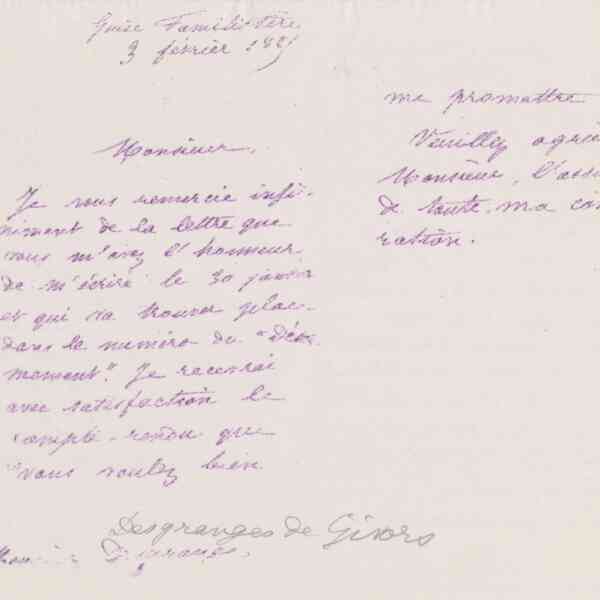 Guise Familistère
3 février 189
Monsieur,
Je vous remercie infi-
niment de la lettre que
vous m'avez l'honneur
de m'écrire le 30 janvier
et qui va trouver place
dans le numéro du "Dé
moment". Je recevrai
avec satisfaction le
compte-rendu que
vous voulez bien
Desgranges de Givors
Monsieur Desgranges.
me promettre
Veuillez agré
Monsieur, l'assu
de toute ma con
ration.